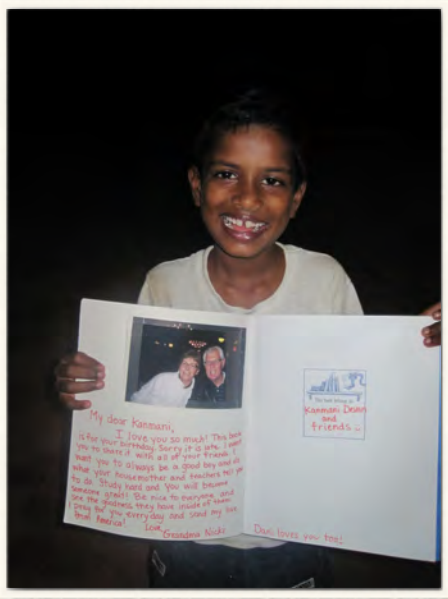 My dear Kanmani,
I love you so much! This book
is for your birthday. Sorry it is late. I want
you to share it with all of your friends. I
want you to always be a good boy and do
what your housemother and teachers tell you
to do. Study hard and you will become
someone great! Be nice to everyone and
see the goodness they have inside of them.
I pray for you every day and send my love
from America!
Love,
Grandma Nicki
This book belongs to
Kanmani Devan
and
friends
Dani loves you too!